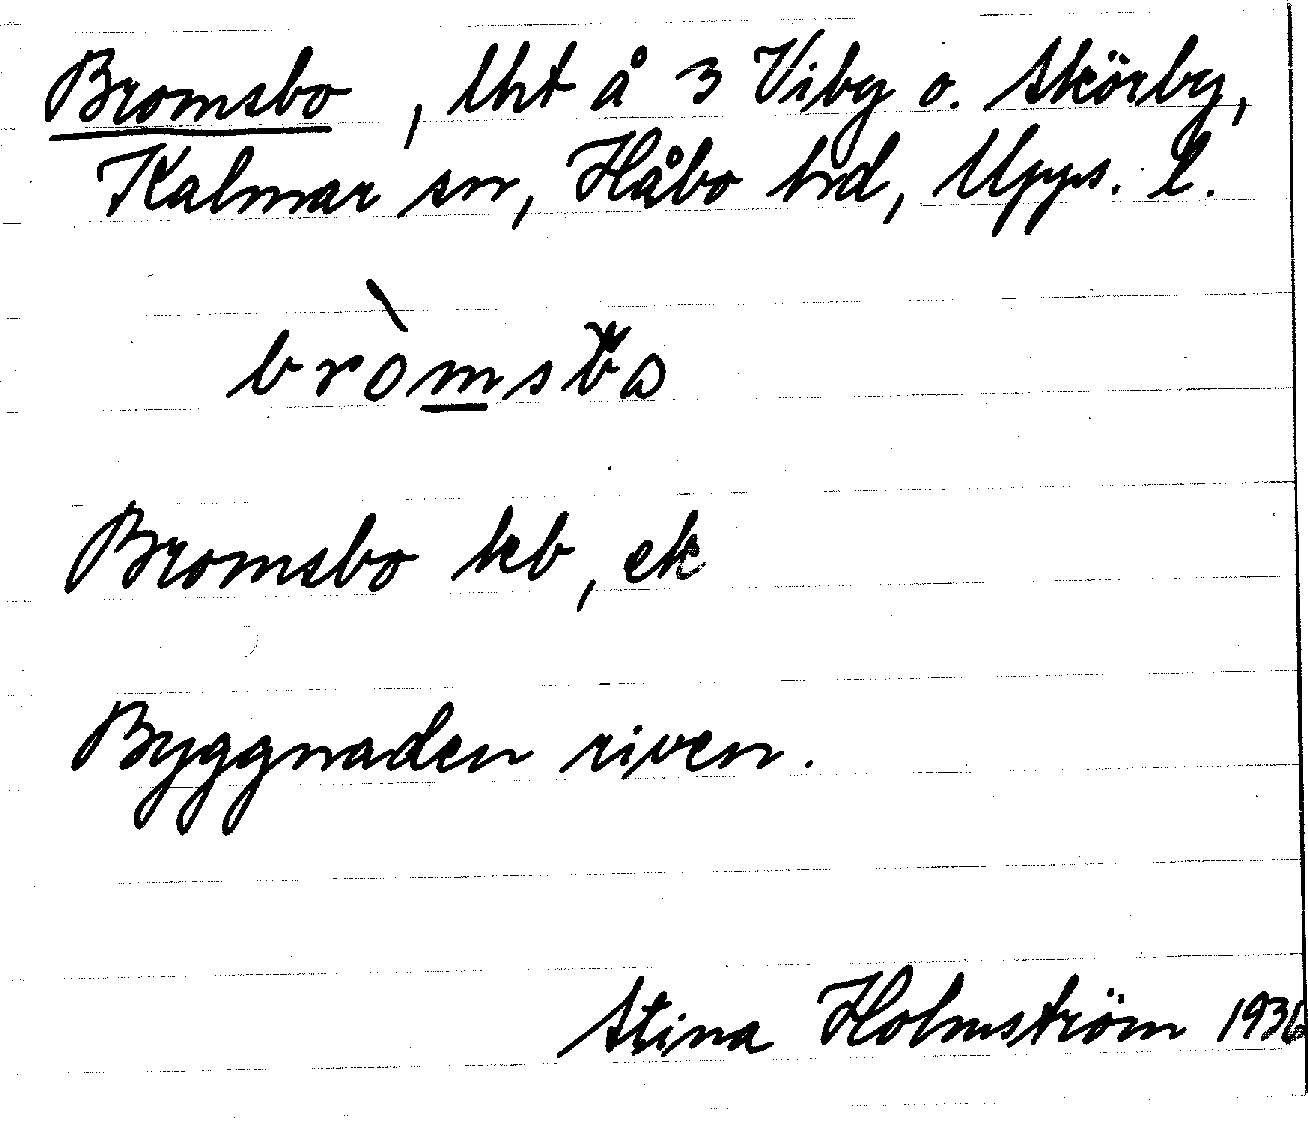 Bromsbo, lht å 3 Viby o. Skörby,
Kalmar sn, Håbo hrd, Upps. l.
bròmsbo
Bromsbo kb, ek
Byggnaden riven.
Stina Holmström 1936